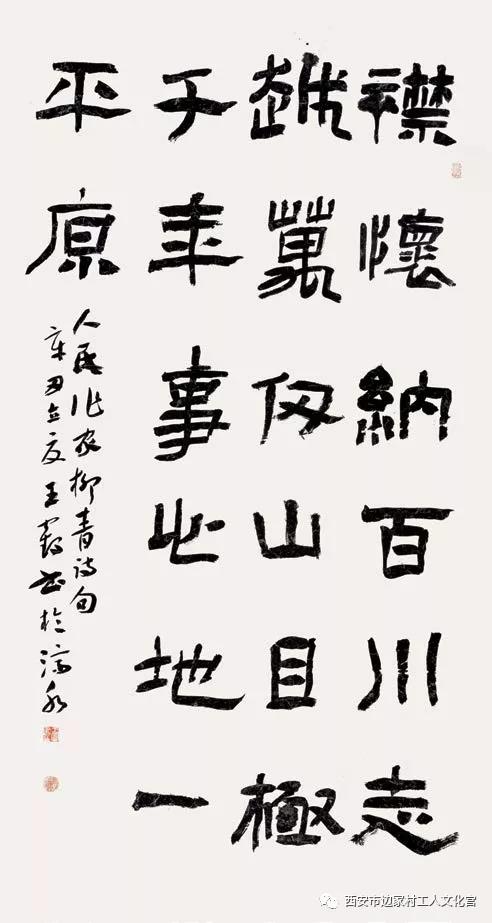 襟懷納百川志
越萬仞山目極
千年事心地一
平原
人民作家柳青诗句
辛丑立夏王書於
西安市边家村工人文化宫